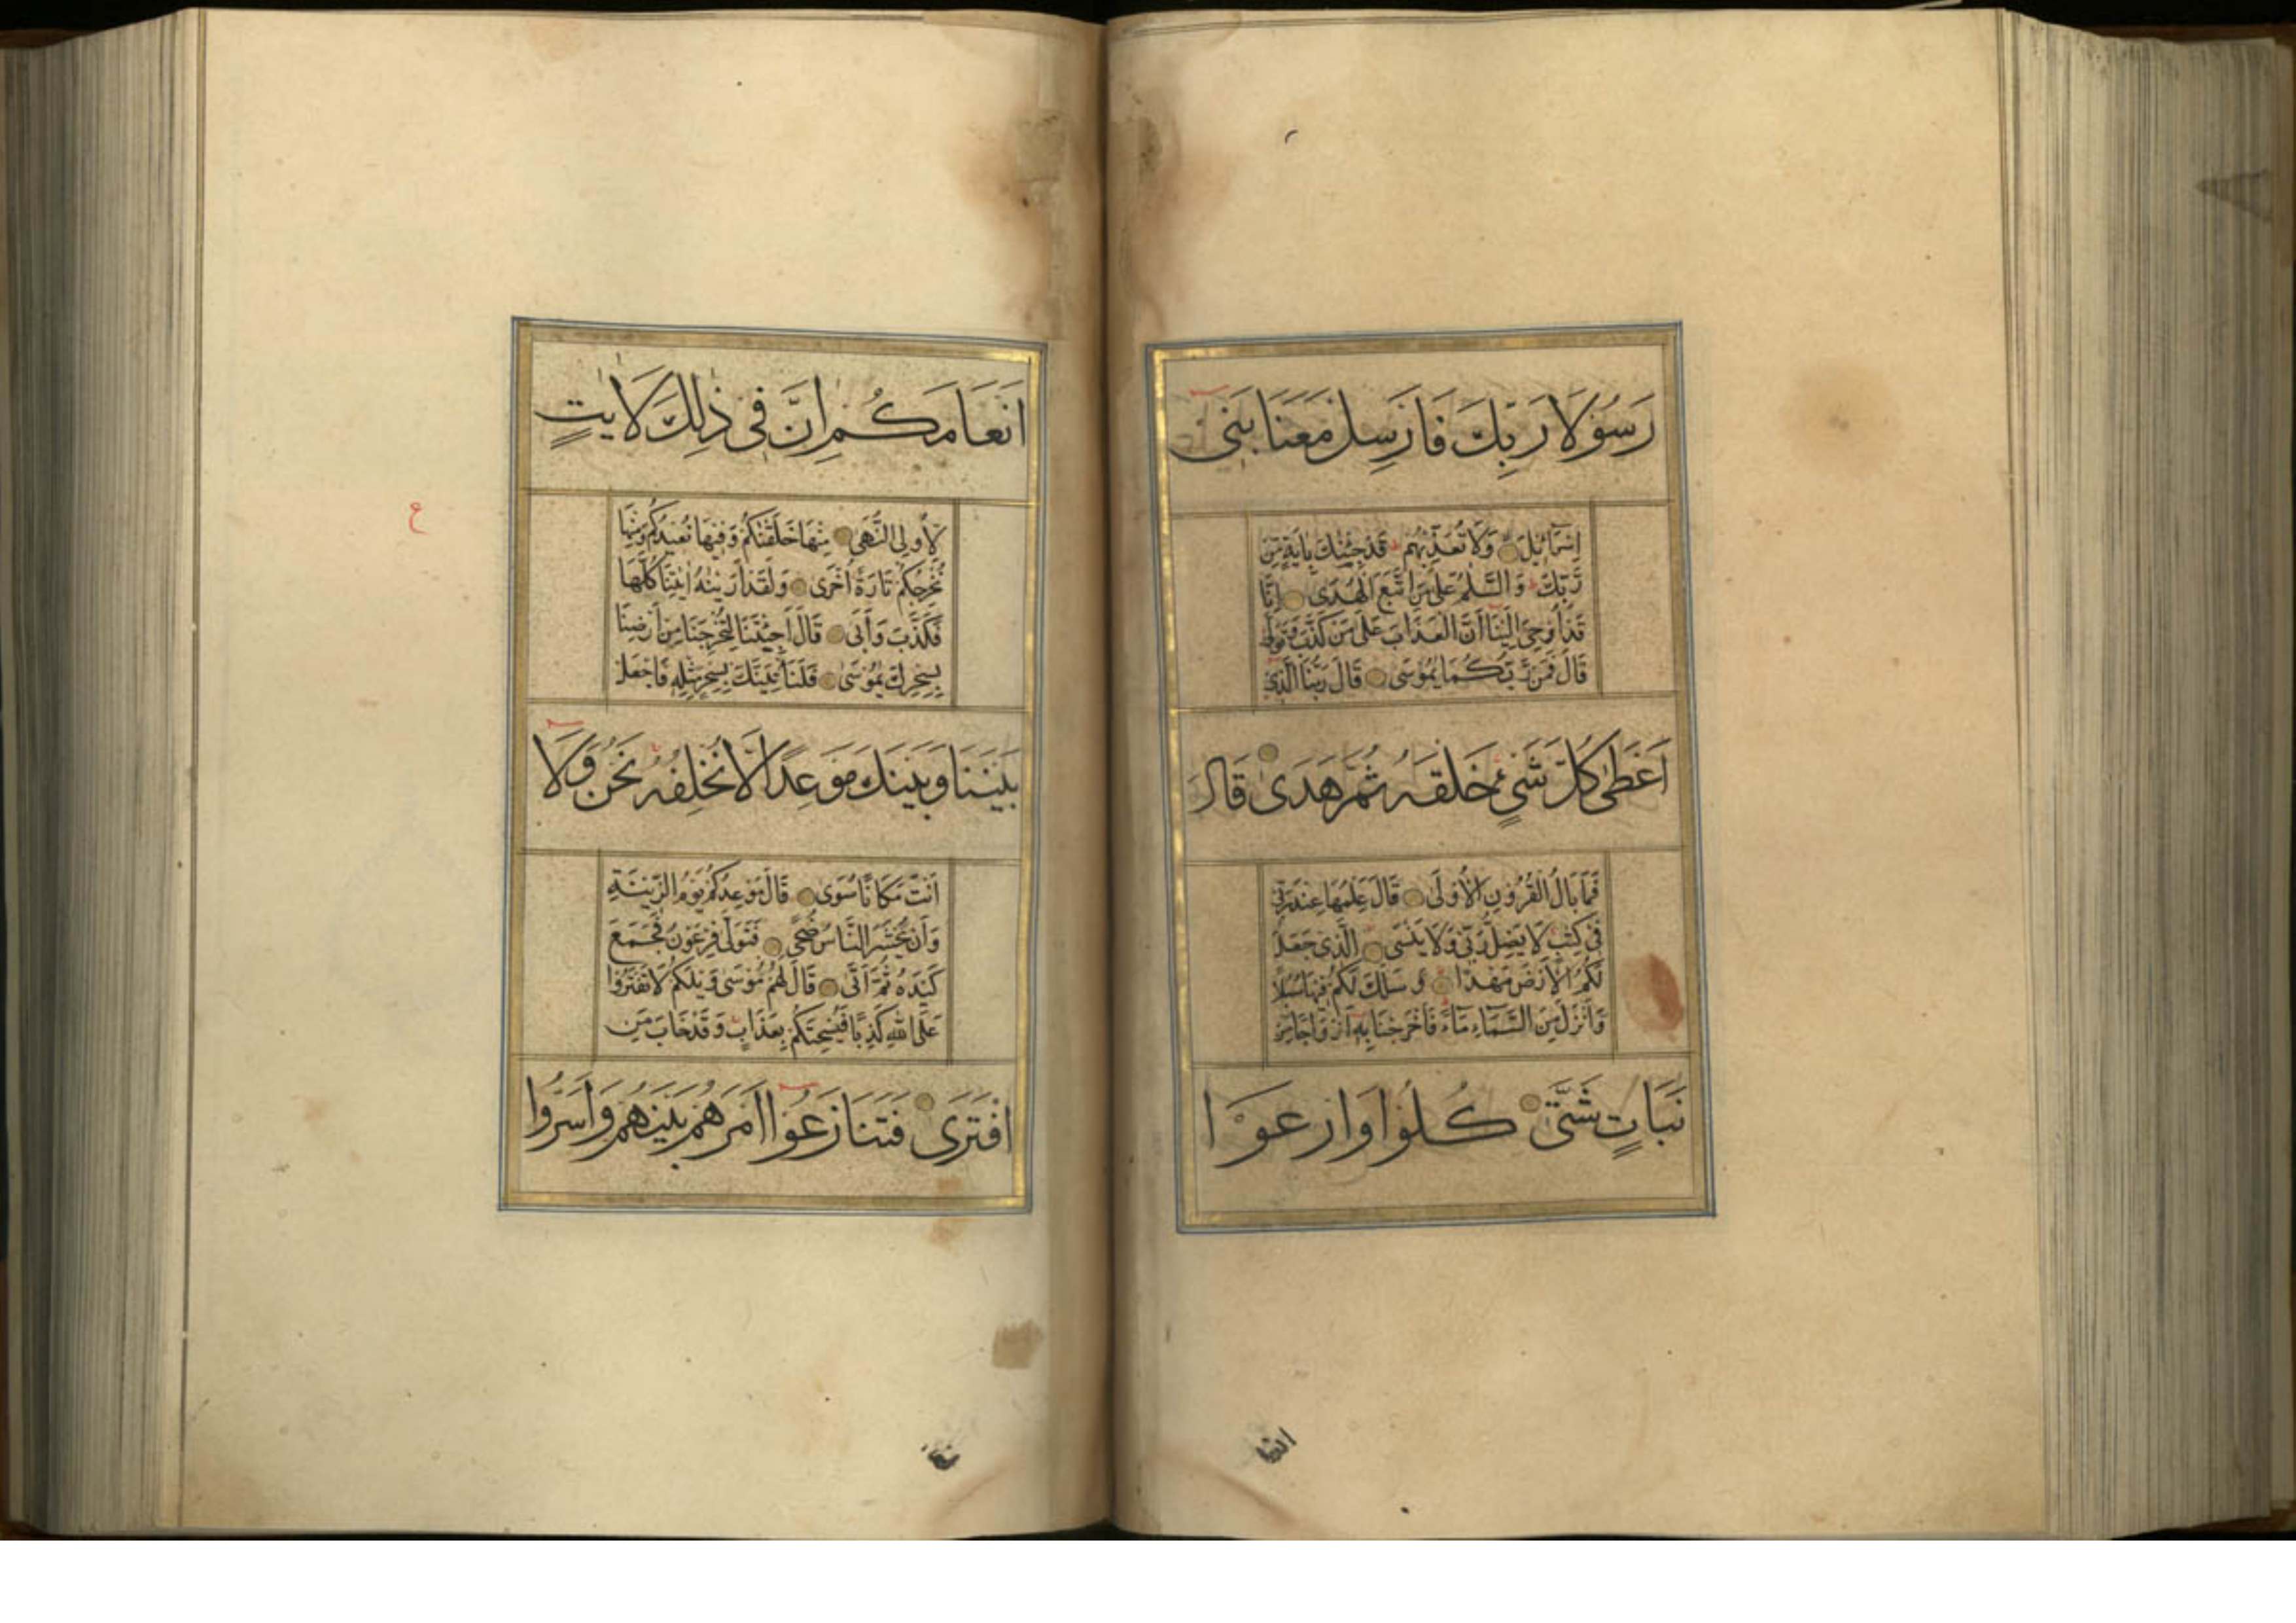 رَسُوْلَا رَبِّكَ فَاَرْسِلْ مَعَنَا بَنِیْ
اِسْرَآئِیْلَ وَلَا تُعَذِّبْهُمْ قَدْ جِئْنٰكَ بِاٰیَةٍ مِّنْ
رَّبِّكَ وَالسَّلٰمُ عَلٰی مَنِ اتَّبَعَ الْهُدٰی اِنَّا
قَدْ اُوْحِیَ اِلَیْنَا اَنَّ الْعَذَابَ عَلٰی مَنْ كَذَّبَ وَتَوَلّٰی
قَالَ فَمَنْ رَّبُّكُمَا یٰمُوْسٰی قَالَ رَبُّنَا الَّذِیْ
اَعْطٰی كُلَّ شَیْءٍ خَلْقَهٗ ثُمَّ هَدٰی قَالَ
فَمَا بَالُ الْقُرُوْنِ الْاُوْلٰی قَالَ عِلْمُهَا عِنْدَ رَبِّیْ
فِیْ كِتٰبٍ لَا یَضِلُّ رَبِّیْ وَلَا یَنْسَی الَّذِیْ جَعَلَ
لَكُمُ الْاَرْضَ مَهْدًا وَسَلَكَ لَكُمْ فِیْهَا سُبُلًا
وَاَنْزَلَ مِنَ السَّمَآءِ مَآءً فَاَخْرَجْنَا بِهٖ اَزْوَاجًا مِّنْ
نَبَاتٍ شَتّٰی كُلُوْا وَارْعَوْا
اَنْعَامَكُمْ اِنَّ فِیْ ذٰلِكَ لَاٰیٰتٍ
لِّاُولِی النُّهٰی مِنْهَا خَلَقْنٰكُمْ وَفِیْهَا نُعِیْدُكُمْ وَمِنْهَا
نُخْرِجُكُمْ تَارَةً اُخْرٰی وَلَقَدْ اَرَیْنٰهُ اٰیٰتِنَا كُلَّهَا
فَكَذَّبَ وَاَبٰی قَالَ اَجِئْتَنَا لِتُخْرِجَنَا مِنْ اَرْضِنَا
بِسِحْرِكَ یٰمُوْسٰی فَلَنَاْتِیَنَّكَ بِسِحْرٍ مِّثْلِهٖ فَاجْعَلْ
بَیْنَنَا وَبَیْنَكَ مَوْعِدًا لَّا نُخْلِفُهٗ نَحْنُ وَلَا
اَنْتَ مَكَانًا سُوًی قَالَ مَوْعِدُكُمْ یَوْمُ الزِّیْنَةِ
وَاَنْ یُّحْشَرَ النَّاسُ ضُحًی فَتَوَلّٰی فِرْعَوْنُ فَجَمَعَ
كَیْدَهٗ ثُمَّ اَتٰی قَالَ لَهُمْ مُّوْسٰی وَیْلَكُمْ لَا تَفْتَرُوْا
عَلَی اللهِ كَذِبًا فَیُسْحِتَكُمْ بِعَذَابٍ وَقَدْ خَابَ مَنِ
افْتَرٰی فَتَنَازَعُوْا اَمْرَهُمْ بَیْنَهُمْ وَاَسَرُّوا
ع